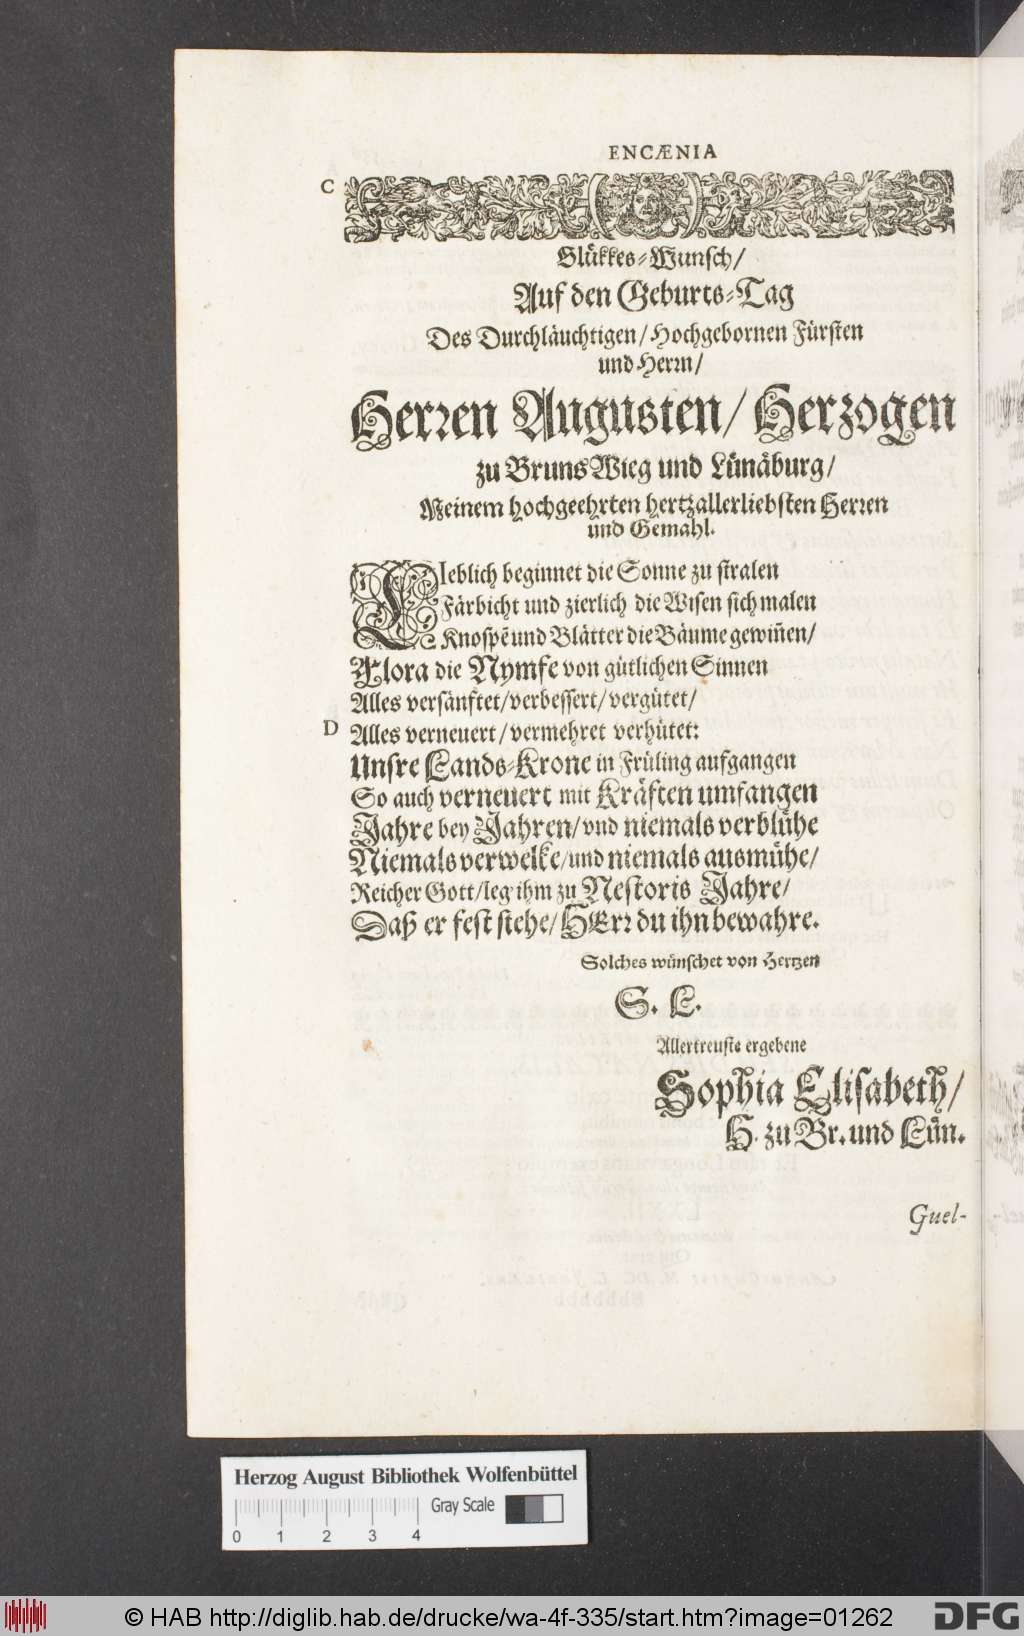 ENCÆNIA
C
Glükkes-Wunsch/
Auf den Geburts-Tag
Des Durchläuchtigen/ Hochgebornen Fürsten
und Herrn/
Herꝛen Augusten/ Herzogen
zu BrunsWieg und Lünäburg/
Meinem hochgeehrten hertzallerliebsten Herꝛen
und Gemahl.
LIeblich beginnet die Sonne zu stralen
Färbicht und zierlich die Wisen sich malen
Knospẽ und Blätter die Bäume gewiñen/
Flora die Nymfe von gütlichen Sinnen
Alles versänftet/ verbessert/ vergütet/
D
Alles verneuert/ vermehret verhütet:
Unsre Lands-Krone in Früling aufgangen
So auch verneuert mit Kräften umfangen
Jahre bey Jahren/ vnd niemals verblühe
Niemals verwelke/ und niemals ausmühe/
Reicher Gott/ leg ihm zu Nestoris Jahre/
Daß er fest stehe/ HErꝛ du ihn bewahre.
Solches wünschet von Hertzen
S. L.
Allertreuste ergebene
Sophia Elisabeth/
H. zu Br. und Lün.
Guel-
Herzog August Bibliothek Wolfenbüttel
Gray Scale
0 1 2 3 4
© HAB http://diglib.hab.de/drucke/wa-4f-335/start.htm?image=01262
DFG